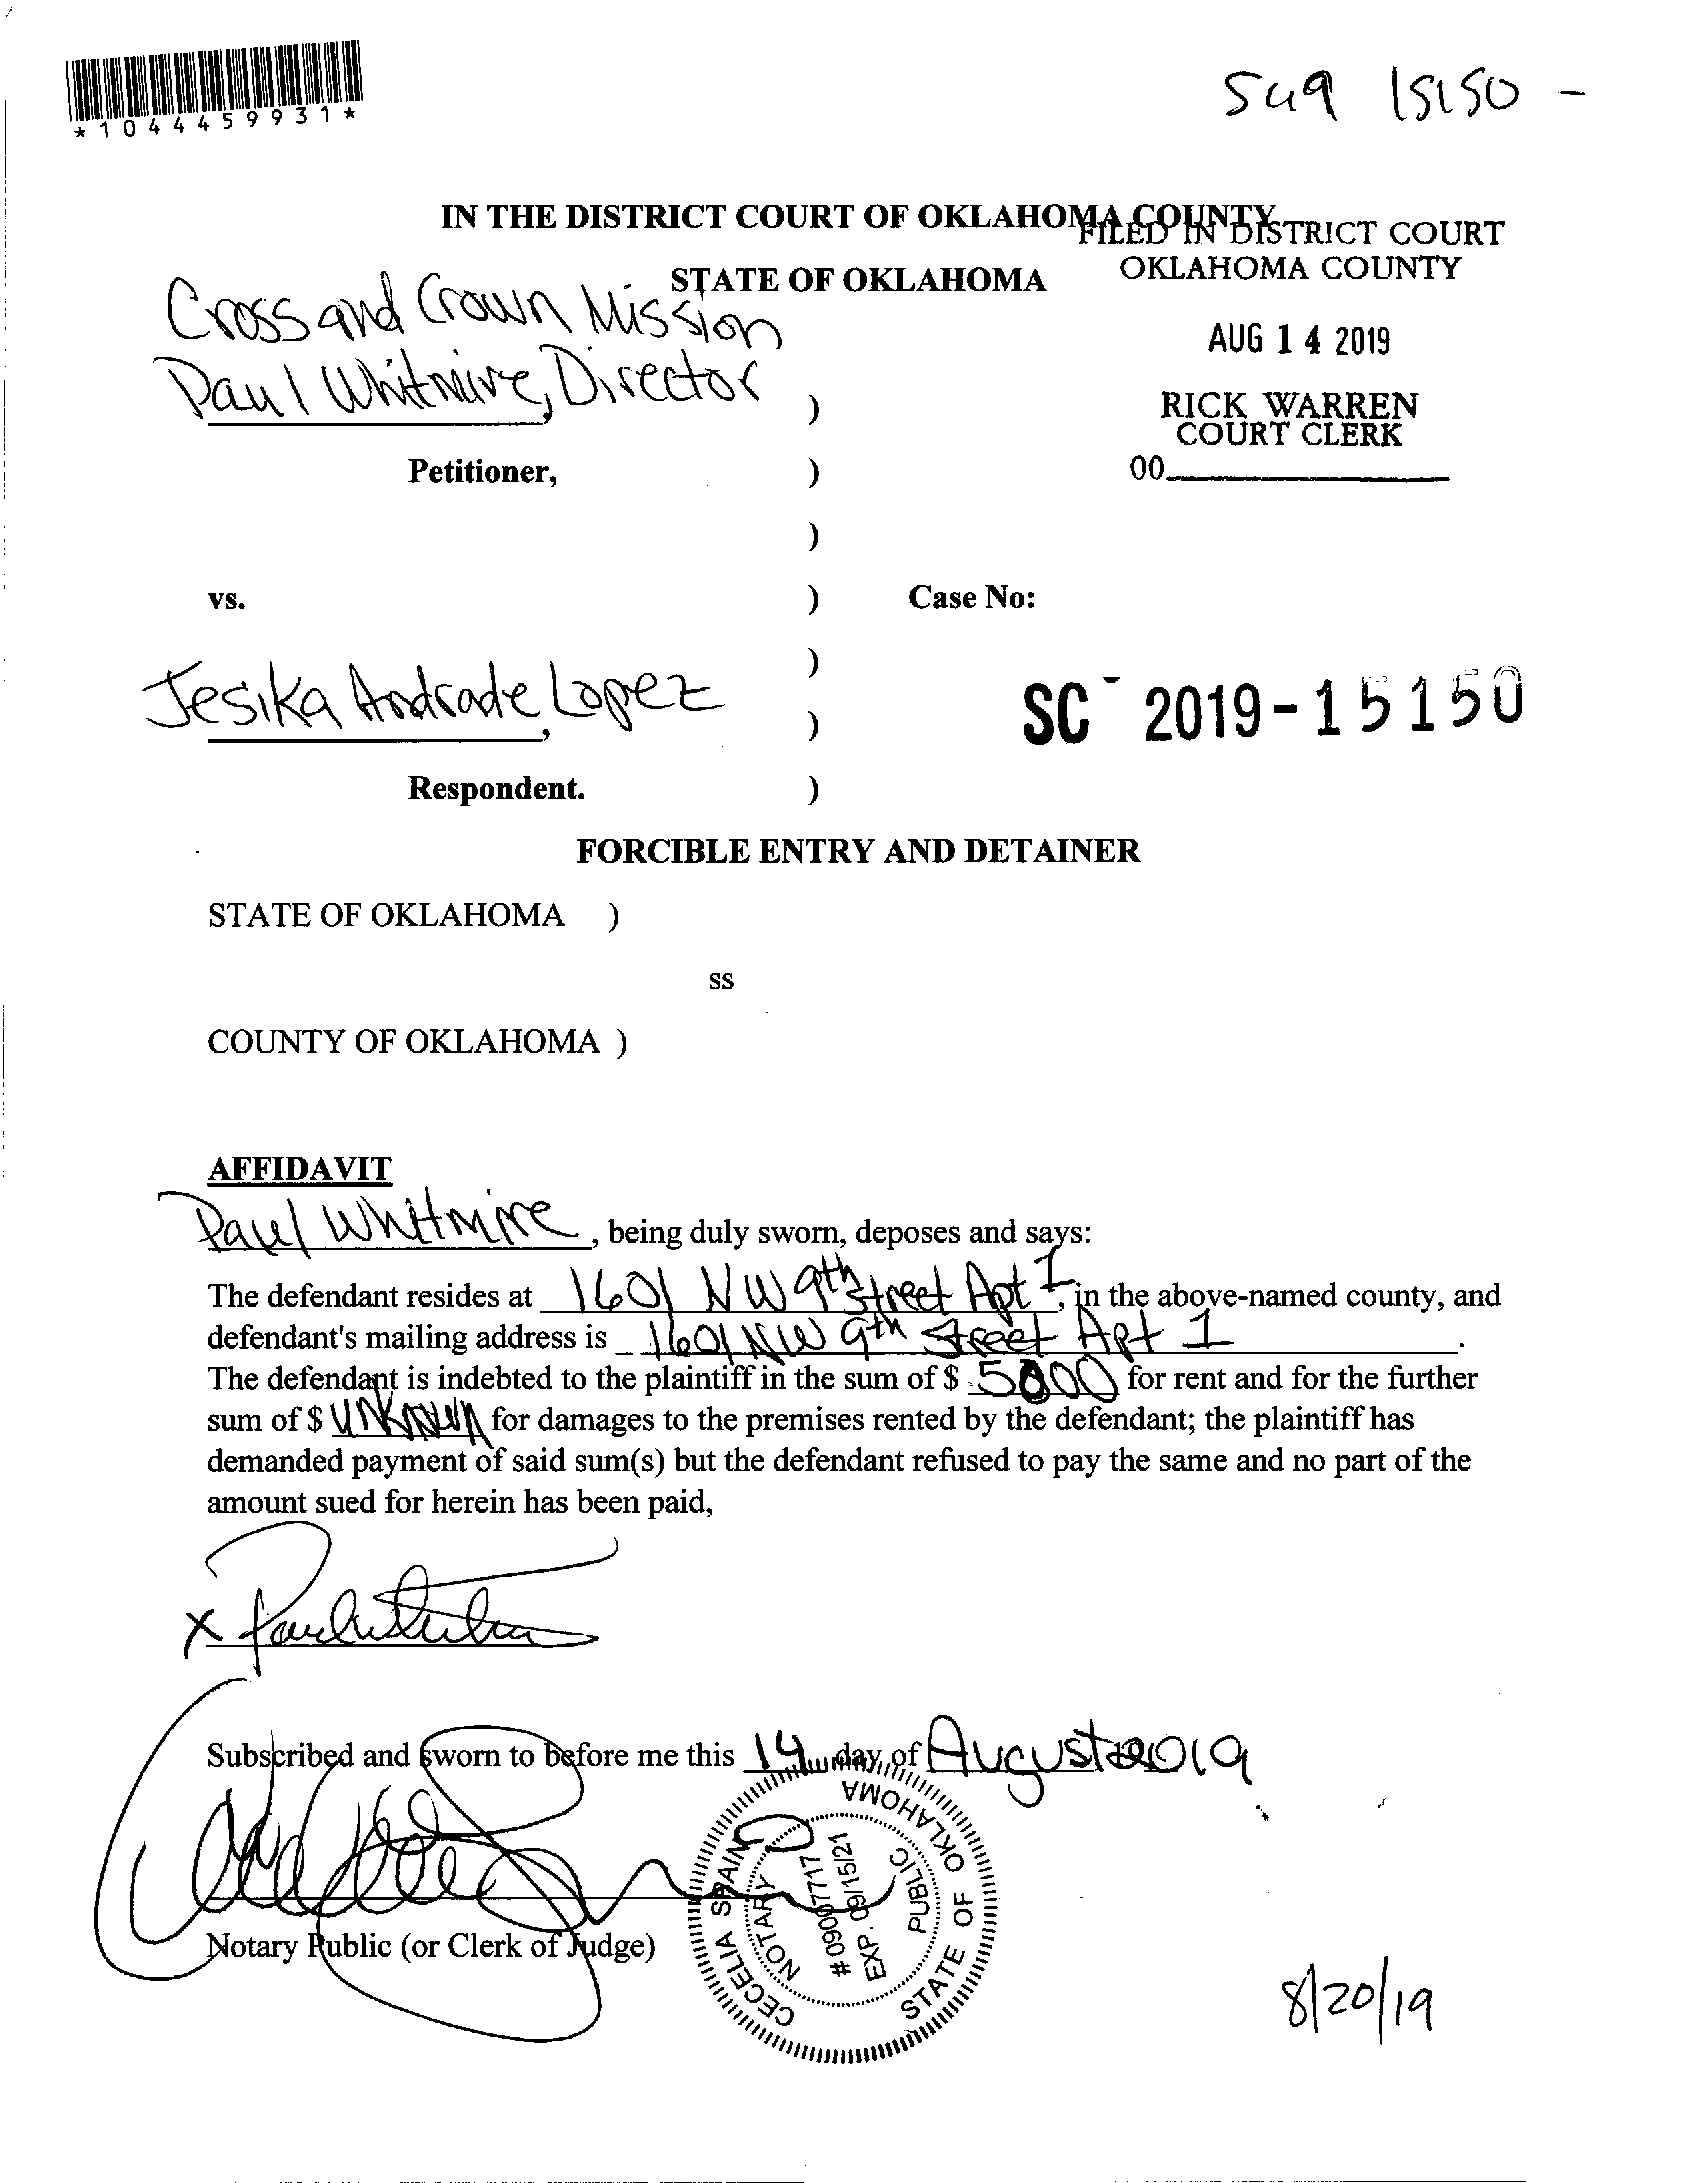 *1044459931*
IN THE DISTRICT COURT OF OKLAHOMA COUNTY
FILED IN DISTRICT COURT
OKLAHOMA COUNTY
STATE OF OKLAHOMA
AUG 14 2019
RICK WARREN
COURT CLERK
00
Cross and Crown Mission
Paul Whitmire, Director )
Petitioner, )
)
vs. ) Case No:
)
SC- 2019-15150
Jesika Andrade Lopez, )
Respondent. )
FORCIBLE ENTRY AND DETAINER
STATE OF OKLAHOMA )
ss
COUNTY OF OKLAHOMA )
AFFIDAVIT
Paul Whitmire, being duly sworn, deposes and says:
The defendant resides at 1601 NW 9th Street Apt 1, in the above-named county, and
defendant's mailing address is 1601 NW 9th Street Apt 1.
The defendant is indebted to the plaintiff in the sum of $ 5000 for rent and for the further
sum of $ unknown for damages to the premises rented by the defendant; the plaintiff has
demanded payment of said sum(s) but the defendant refused to pay the same and no part of the
amount sued for herein has been paid,
x
Subscribed and sworn to before me this 14 day of August 2019
Notary Public (or Clerk of Judge)
CECELIA SPAIN
NOTARY PUBLIC
# 09007717
EXP. 09/15/21
STATE OF OKLAHOMA
8/20/19